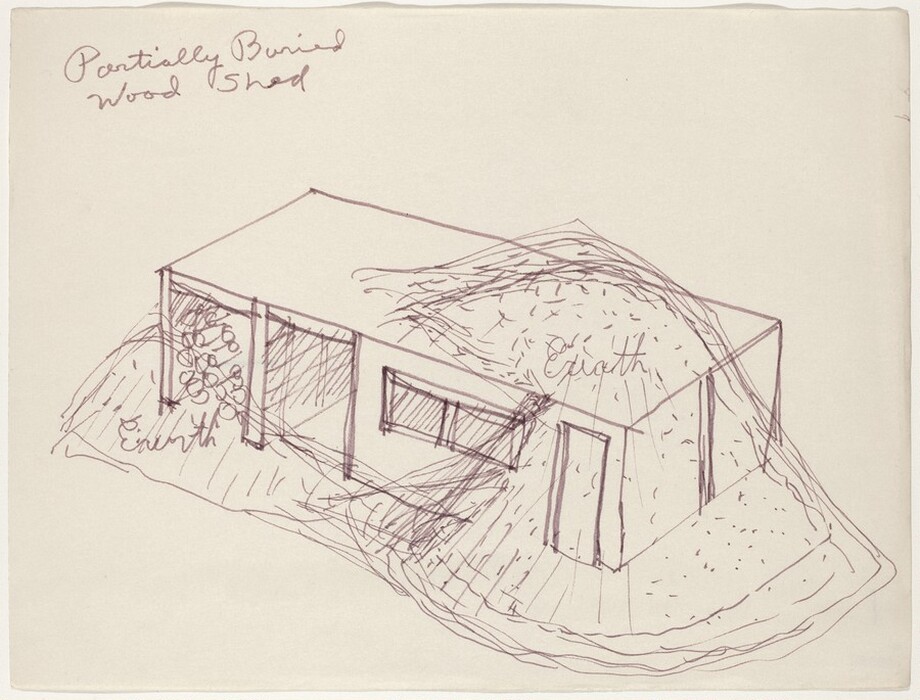 Partially Buried
Wood Shed
Earth
Earth